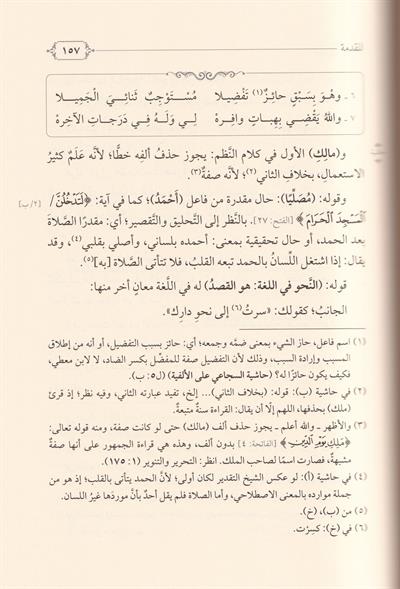 المقدمة
١٥٧
٦ ـ وهْوَ بِسَبْقٍ حائِزٌ(١) تَفْضِيلا مُسْتَوْجِبٌ ثَنائِيَ الْجَمِيلا
٧ ـ واللهُ يَقْضِي بِهِباتٍ وافِرهْ لِي وَلَهُ فِي دَرَجاتِ الآخِرهْ
و(مالِكِ) الأول في كلام النَّظم: يجوز حذفُ ألفِه خطًّا؛ لأنَّه عَلَمٌ كثيرُ
الاستعمالِ، بخلافِ الثاني(٢)؛ لأنَّه صفةٌ(٣).
وقوله: (مُصَلِّيًا): حال مقدرة من فاعل (أَحْمَدُ)؛ كما في آية: ﴿لَتَدْخُلُنَّ /
[٢/ب]
ٱلْمَسْجِدَ ٱلْحَرَامَ﴾ [الفتح: ٢٧]. بالنَّظر إلى التَّحليق والتَّقصير؛ أي: مقدرًا الصَّلاةَ
بعد الحمد، أو حال تحقيقية بمعنى: أحمده بلساني، وأصلي بقلبي(٤)، وقد
يقال: إذا اشتغل اللِّسانُ بالحمد تبعه القلبُ، فلا تتأتى الصَّلاة [به](٥).
قوله: (النَّحو في اللغة: هو القصدُ) له في اللُّغة معانٍ أخر منها:
الجانبُ؛ كقولك: «سرتُ(٦) إلى نحوِ دارِك».
(١) اسم فاعل، حاز الشيء بمعنى ضمَّه وجمعه؛ أي: حائز بسبب التفضيل، أو أنه من إطلاق
المسبب وإرادة السبب، وذلك لأن التفضيل صفة للمفضِّل بكسر الضاد، لا لابن معطي،
فكيف يكون حائزًا له؟ (حاشية السجاعي على الألفية) (ل٥: ب).
(٢) في حاشية (ب): قوله: (بخلاف الثاني)... إلخ، تفيد عبارته الثاني، وفيه نظر؛ إذ قرئ
(ملك) بحذفها، اللهم إلَّا أن يقال: القراءة سنةٌ متبعةٌ.
(٣) والأظهر ـ والله أعلم ـ يجوز حذف ألف (مالك) حتى لو كانت صفة، ومنه قوله تعالى:
﴿مَلِكِ يَوْمِ ٱلدِّينِ﴾ [الفاتحة: ٤] بدون ألف، وهذه هي قراءة الجمهور على أنها صفةٌ
مشبهةٌ، فصارت اسمًا لصاحب الملك. انظر: التحرير والتنوير (١: ١٧٥).
(٤) في حاشية (أ): لو عكس الشيخ التقدير لكان أولى؛ لأنَّ الحمد يتأتى بالقلب؛ إذ هو من
جملة موارده بالمعنى الاصطلاحي، وأما الصلاة فلم يقل أحدٌ بأنَّ موردَها غيرُ اللسان.
(٥) من (ب)، (خ).
(٦) في (خ): كسِرْت.